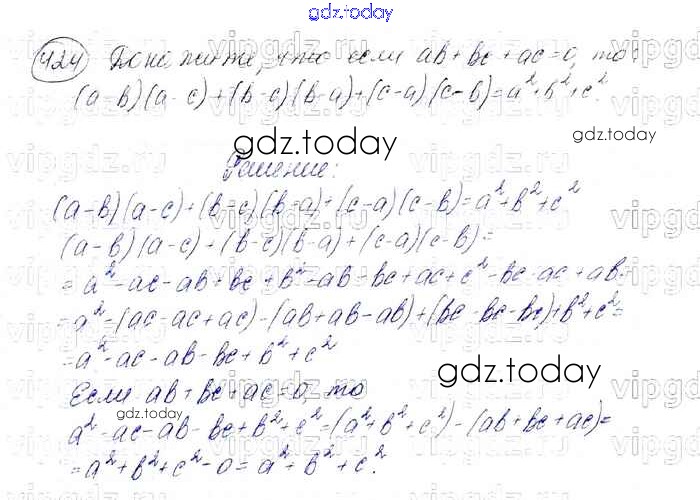 gdz.today
424 Докажите, что если ab + bc + ac = 0, то:
(a-b)(a-c)+(b-c)(b-a)+(c-a)(c-b)=a²+b²+c².
gdz.today
gdz.today
Решение:
(a-b)(a-c)+(b-c)(b-a)+(c-a)(c-b)=a²+b²+c²
(a-b)(a-c)+(b-c)(b-a)+(c-a)(c-b)=
=a²-ac-ab+bc+b²-ab-bc+ac+c²-bc-ac+ab=
=a²-(ac-ac+ac)-(ab+ab-ab)+(bc-bc-bc)+b²+c²=
=a²-ac-ab-bc+b²+c²
gdz.today
Если ab+bc+ac=0, то
gdz.today
a²-ac-ab-bc+b²+c²=(a²+b²+c²)-(ab+bc+ac)=
=a²+b²+c²-0=a²+b²+c².
vipgdz.ru